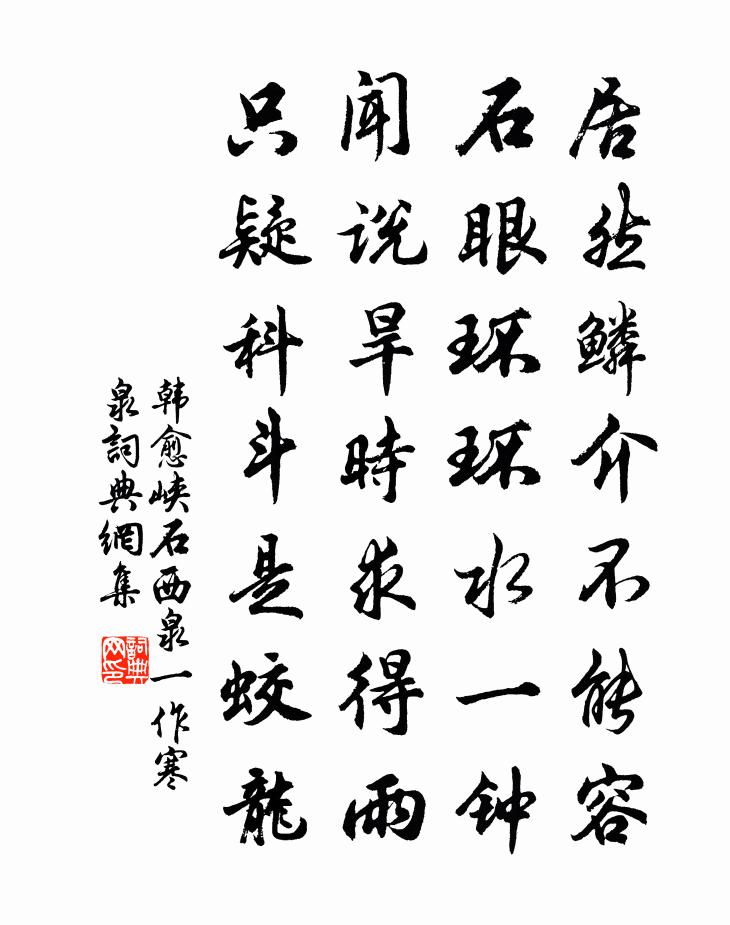 居然鳞介不能容
石眼环环水一钟
闻说旱時求得雨
只疑科斗是蛟龍
韩愈峡石西泉一作寒
泉詞典網集
詞典网印